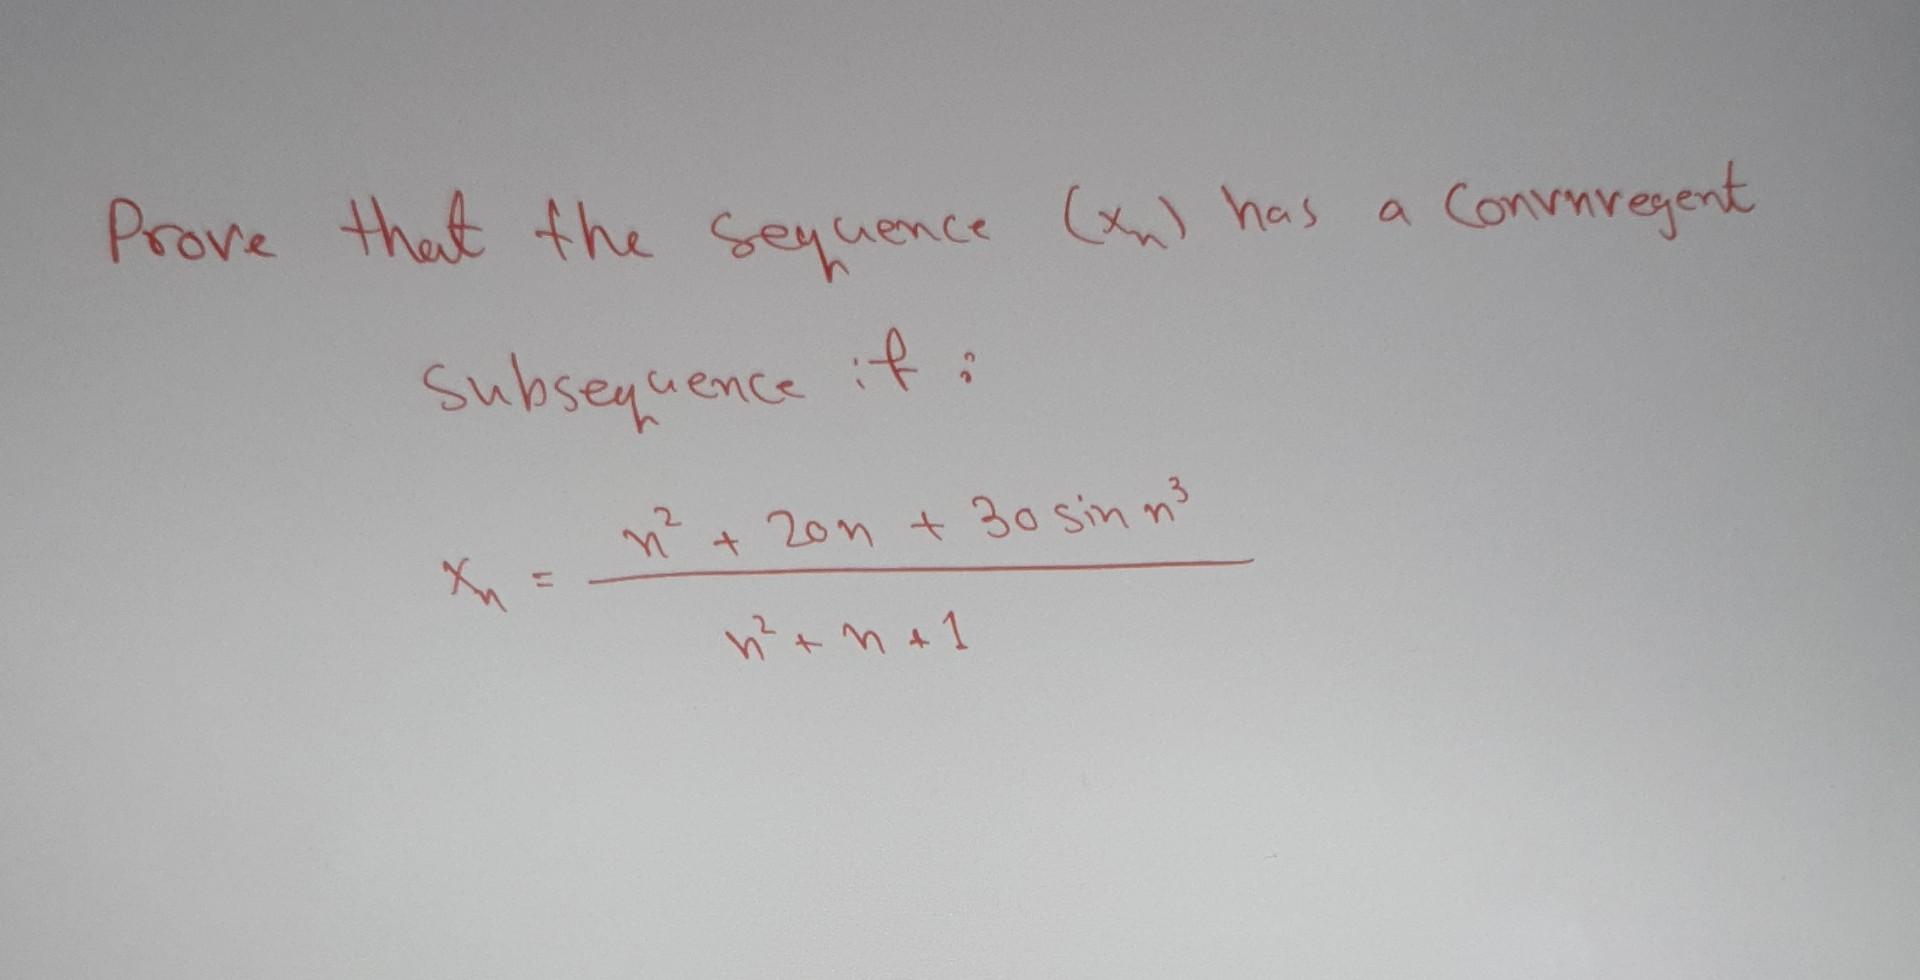 Prove that the sequence (xn) has a Convnvregent
subsequence if :
xn = n² + 20n + 30 sin n³
n² + n + 1